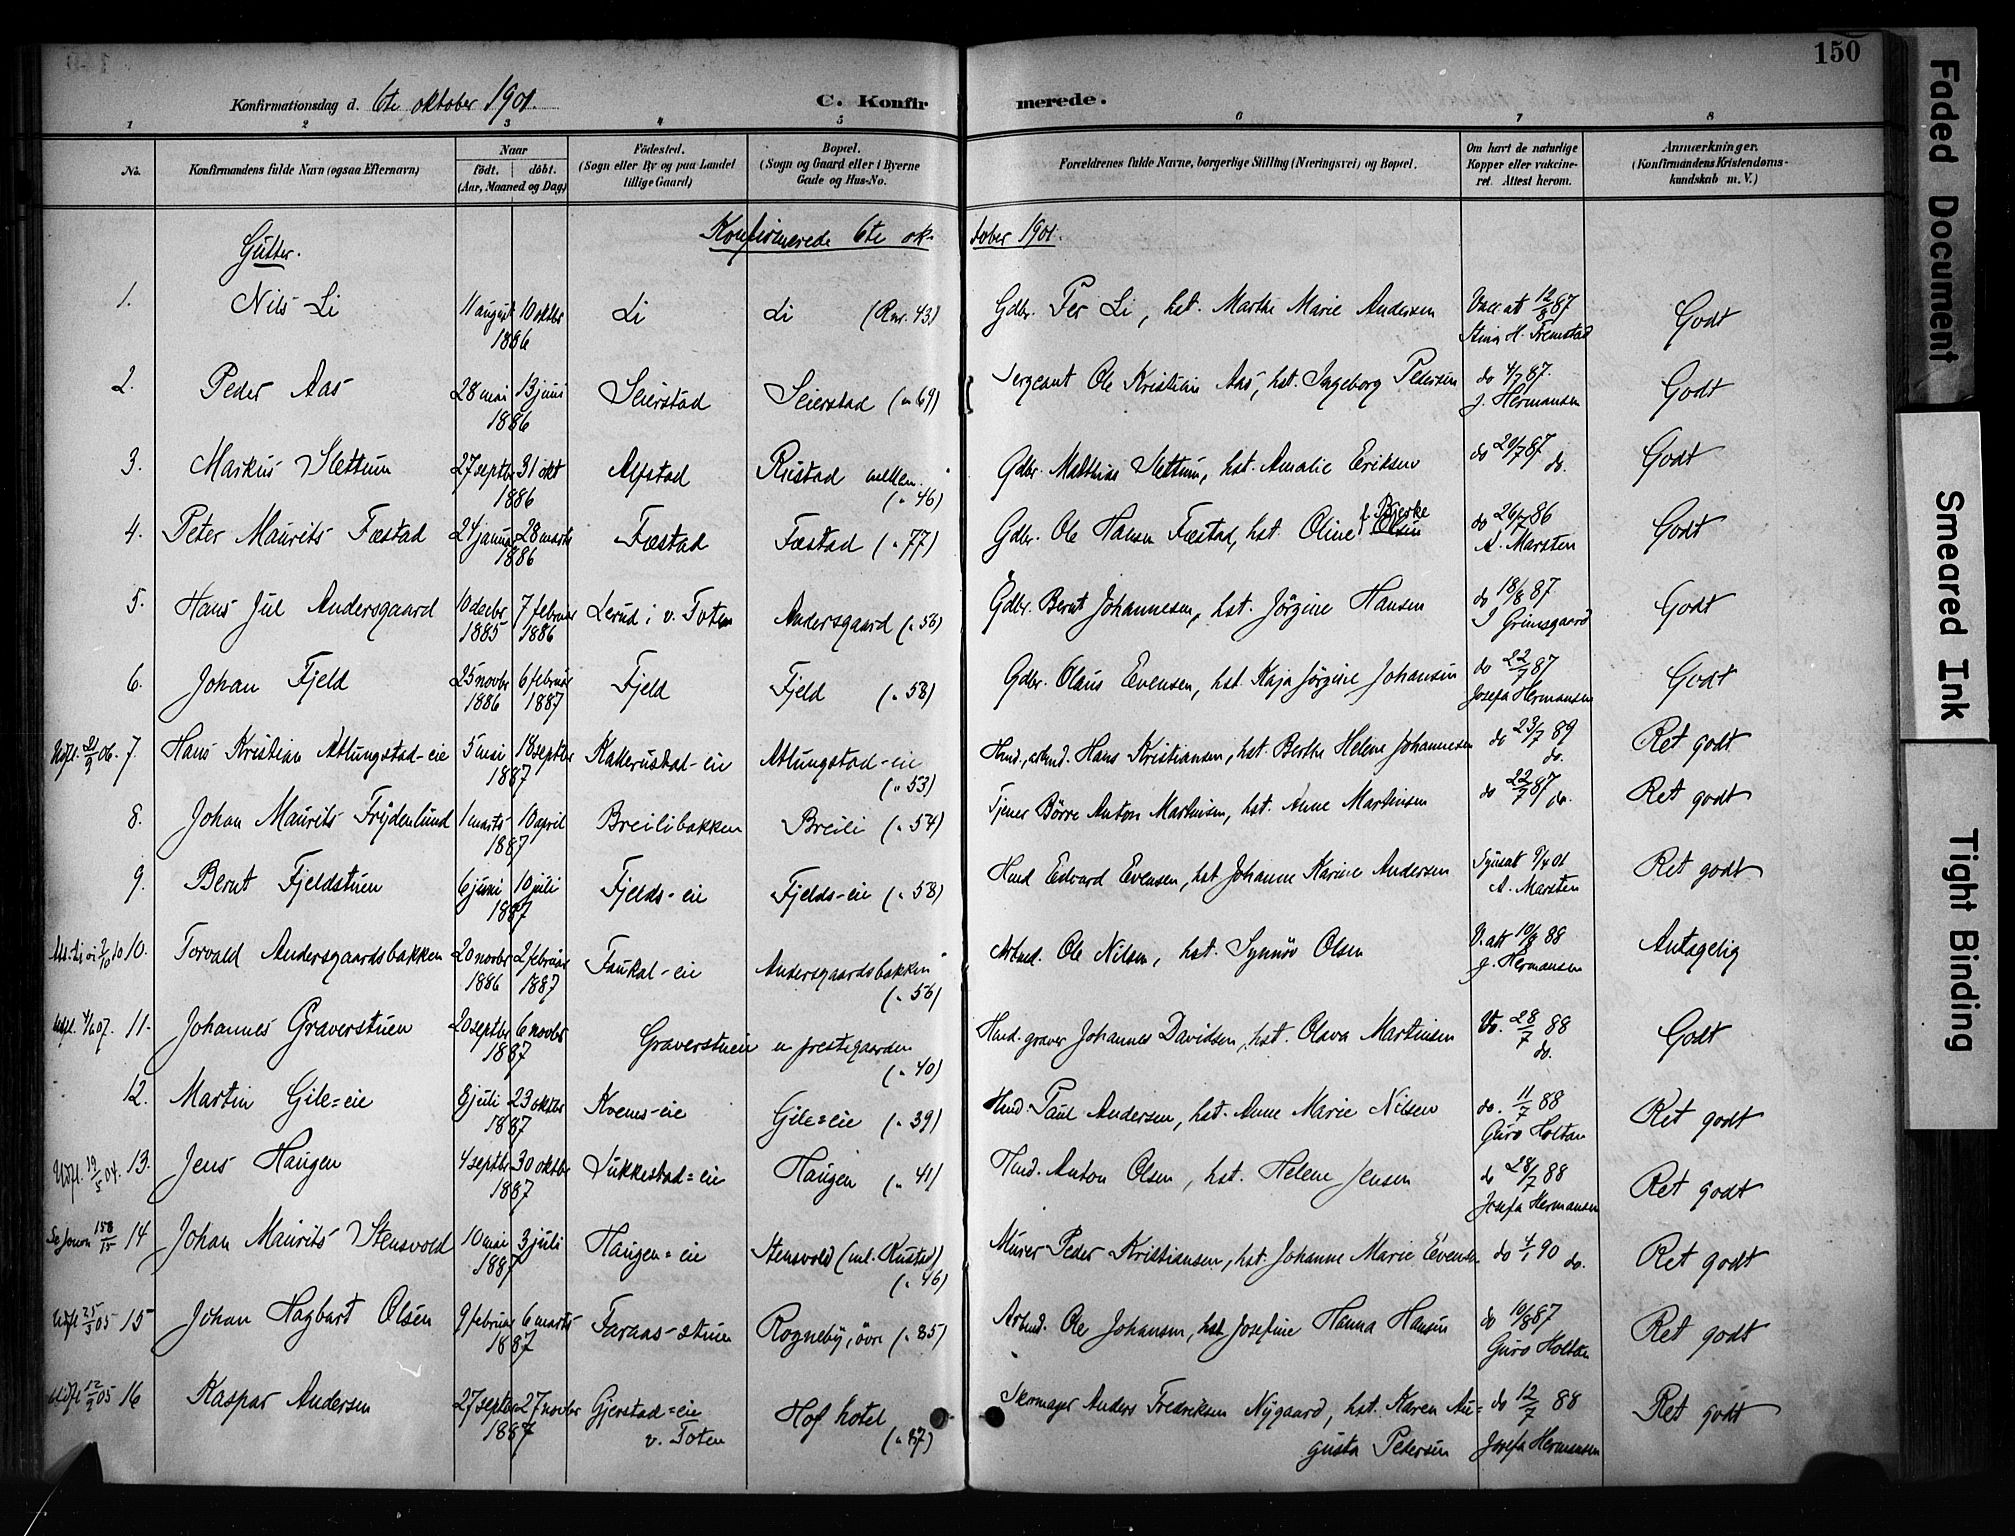 150
Konfirmationsdag d. 6te oktober 1901.
C. Konfirmerede.
1 2 3 4 5 6 7 8
No.
Konfirmandens fulde Navn (ogsaa Efternavn)
Naar
födt. döbt.
(Aar, Maaned og Dag)
Födested.
(Sogn eller By og paa Landet tillige Gaard)
Bopæl.
(Sogn og Gaard eller i Byerne Gade og Hus-No.
Forældrenes fulde Navne, borgerlige Stilling (Næringsvei) og Bopæl.
Om havt de naturlige Kopper eller vakcineret. Attest herom.
Anmærkninger.
(Konfirmandens Kristendomskundskab m. V.)
Konfirmerede 6te oktober 1901.
Gutter.
1. Nils Li 11 august 10 oktbr 1886 Li Li (Rnr. 43) Gdbr. Per Li, hst. Marthe Marie Andersen Vacc.at 12/8 87 Stina H. Fremstad Godt
2. Peder Aas 28 mai 13 juni 1886 Seierstad Seierstad (" 69) Sergeant Ole Kristian Aas, hst. Ingeborg Pedersen do 4/7 87. J. Hermansen Godt
3. Markus Slettum 27 septbr 31 okt 1886 Alfstad Rustad mellem (" 46) Gdbr. Matthias Slettum, hst. Amalie Eriksen do 20/7 87 do. Godt
4. Peter Maurits Fæstad 24 januar 28 marts 1886 Fæstad Fæstad (" 77) Gdbr. Ole Hansen Fæstad, hst. Oline f. Bjerke Olsen do 26/7 86 A. Marsten Godt
5. Hans Jul Andersgaard 10 decbr 1885 7 februar 1886 Lerud i v. Toten Andersgaard (" 56) Gdbr. Bernt Johannesen, hst. Jörgine Hansen do 18/8 87 J Grimsgaard Godt
6. Johan Fjeld 25 novbr 1886 6 februar 1887 Fjeld Fjeld (" 58) Gdbr. Olaus Evensen, hst. Kaja Jörgine Johansen do 22/7 87 Josefa Hermansen Godt
7. Hans Kristian Atlungstad-eie 5 mai 18 septbr 1887 Kallerustad-eie Atlungstad-eie (" 53) Hmd., arbmd. Hans Kristiansen, hst. Berthe Helene Johannesen do 23/7 89 do. Ret godt
8. Johan Maurits Frydenlund 1 marts 10 april 1887 Breilibakken Breili (" 54) Tjener Börre Anton Martinsen, hst. Anne Martinsen do 22/7 87 do. Ret godt
9. Bernt Fjeldstuen 6 juni 10 juli 1887 Fjelds-eie Fjelds-eie (" 58) Hmd Edvard Evensen, hst Johanne Karine Andersen A. Marsten Ret godt
10. Torvald Andersgaardsbakken 20 novbr 1886 2 februar 1887 Faukal-eie Andersgaardsbakken (" 56) Arbmd. Ole Nilsen, hst. Synnöv Olsen V. att 10/8 88 J. Hermansen Antagelig
Udfl. 4/6 07. 11. Johannes Graverstuen 20 septbr 6 novbr 1887 Graverstuen u prestegaarden (" 40) Hmd. graver Johannes Davidsen, hst. Olava Martinsen 28/7 88 do. Godt
12. Martin Gile=eie 8 juli 23 oktbr 1887 Kvems-eie Gile=eie (" 39) Hmd Paul Andersen, hst. Anne Marie Nilsen do. 11/7 88 Guro Holtan Ret godt
Udfl. 19/5 04. 13. Jens Haugen 4 septbr 30 oktbr 1887 Lukkestad=eie Haugen (" 41) Hmd. Anton Olsen, hst. Helene Jensen do 28/7 88 Josefa Hermansen Ret godt
14 Johan Maurits Stensvold 10 mai 3 juli 1887 Haugen=eie Stensvold (ml. Rustad) (" 46) Murer Peder Kristiansen, hst. Johanne Marie Evensen do 4/1 90 do. Ret godt
Udfl 25/3 05 15 Johan Hagbart Olsen 9 februar 6 marts 1887 Faraas-stuen Rogneby, övre (" 85) Arbmd. Ole Johansen, hst Josefine Hanna Hansen do 10/8 87 Guro Holtan Ret godt
Udfl 12/2 05 16 Kaspar Andersen 27 septbr 27 novbr 1887 Gjerstad=eie v. Toten Hof hotel (" 87) Skomager Anders Fredriksen Nygaard, hst. Karen Augusta Petersen do 12/7 88 Josefa Hermansen Ret godt
Faded Document
Smeared Ink
Tight Binding